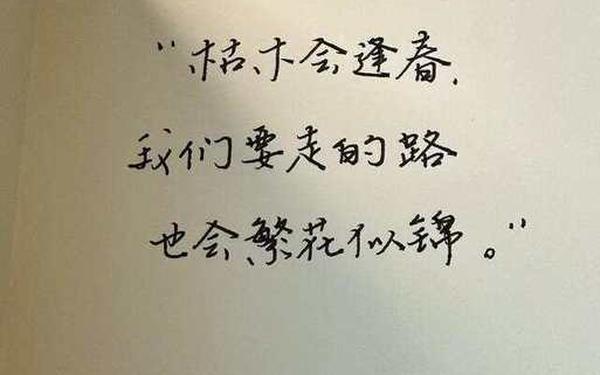 “枯木会逢春,
我们要走的路
也会繁花似锦。”